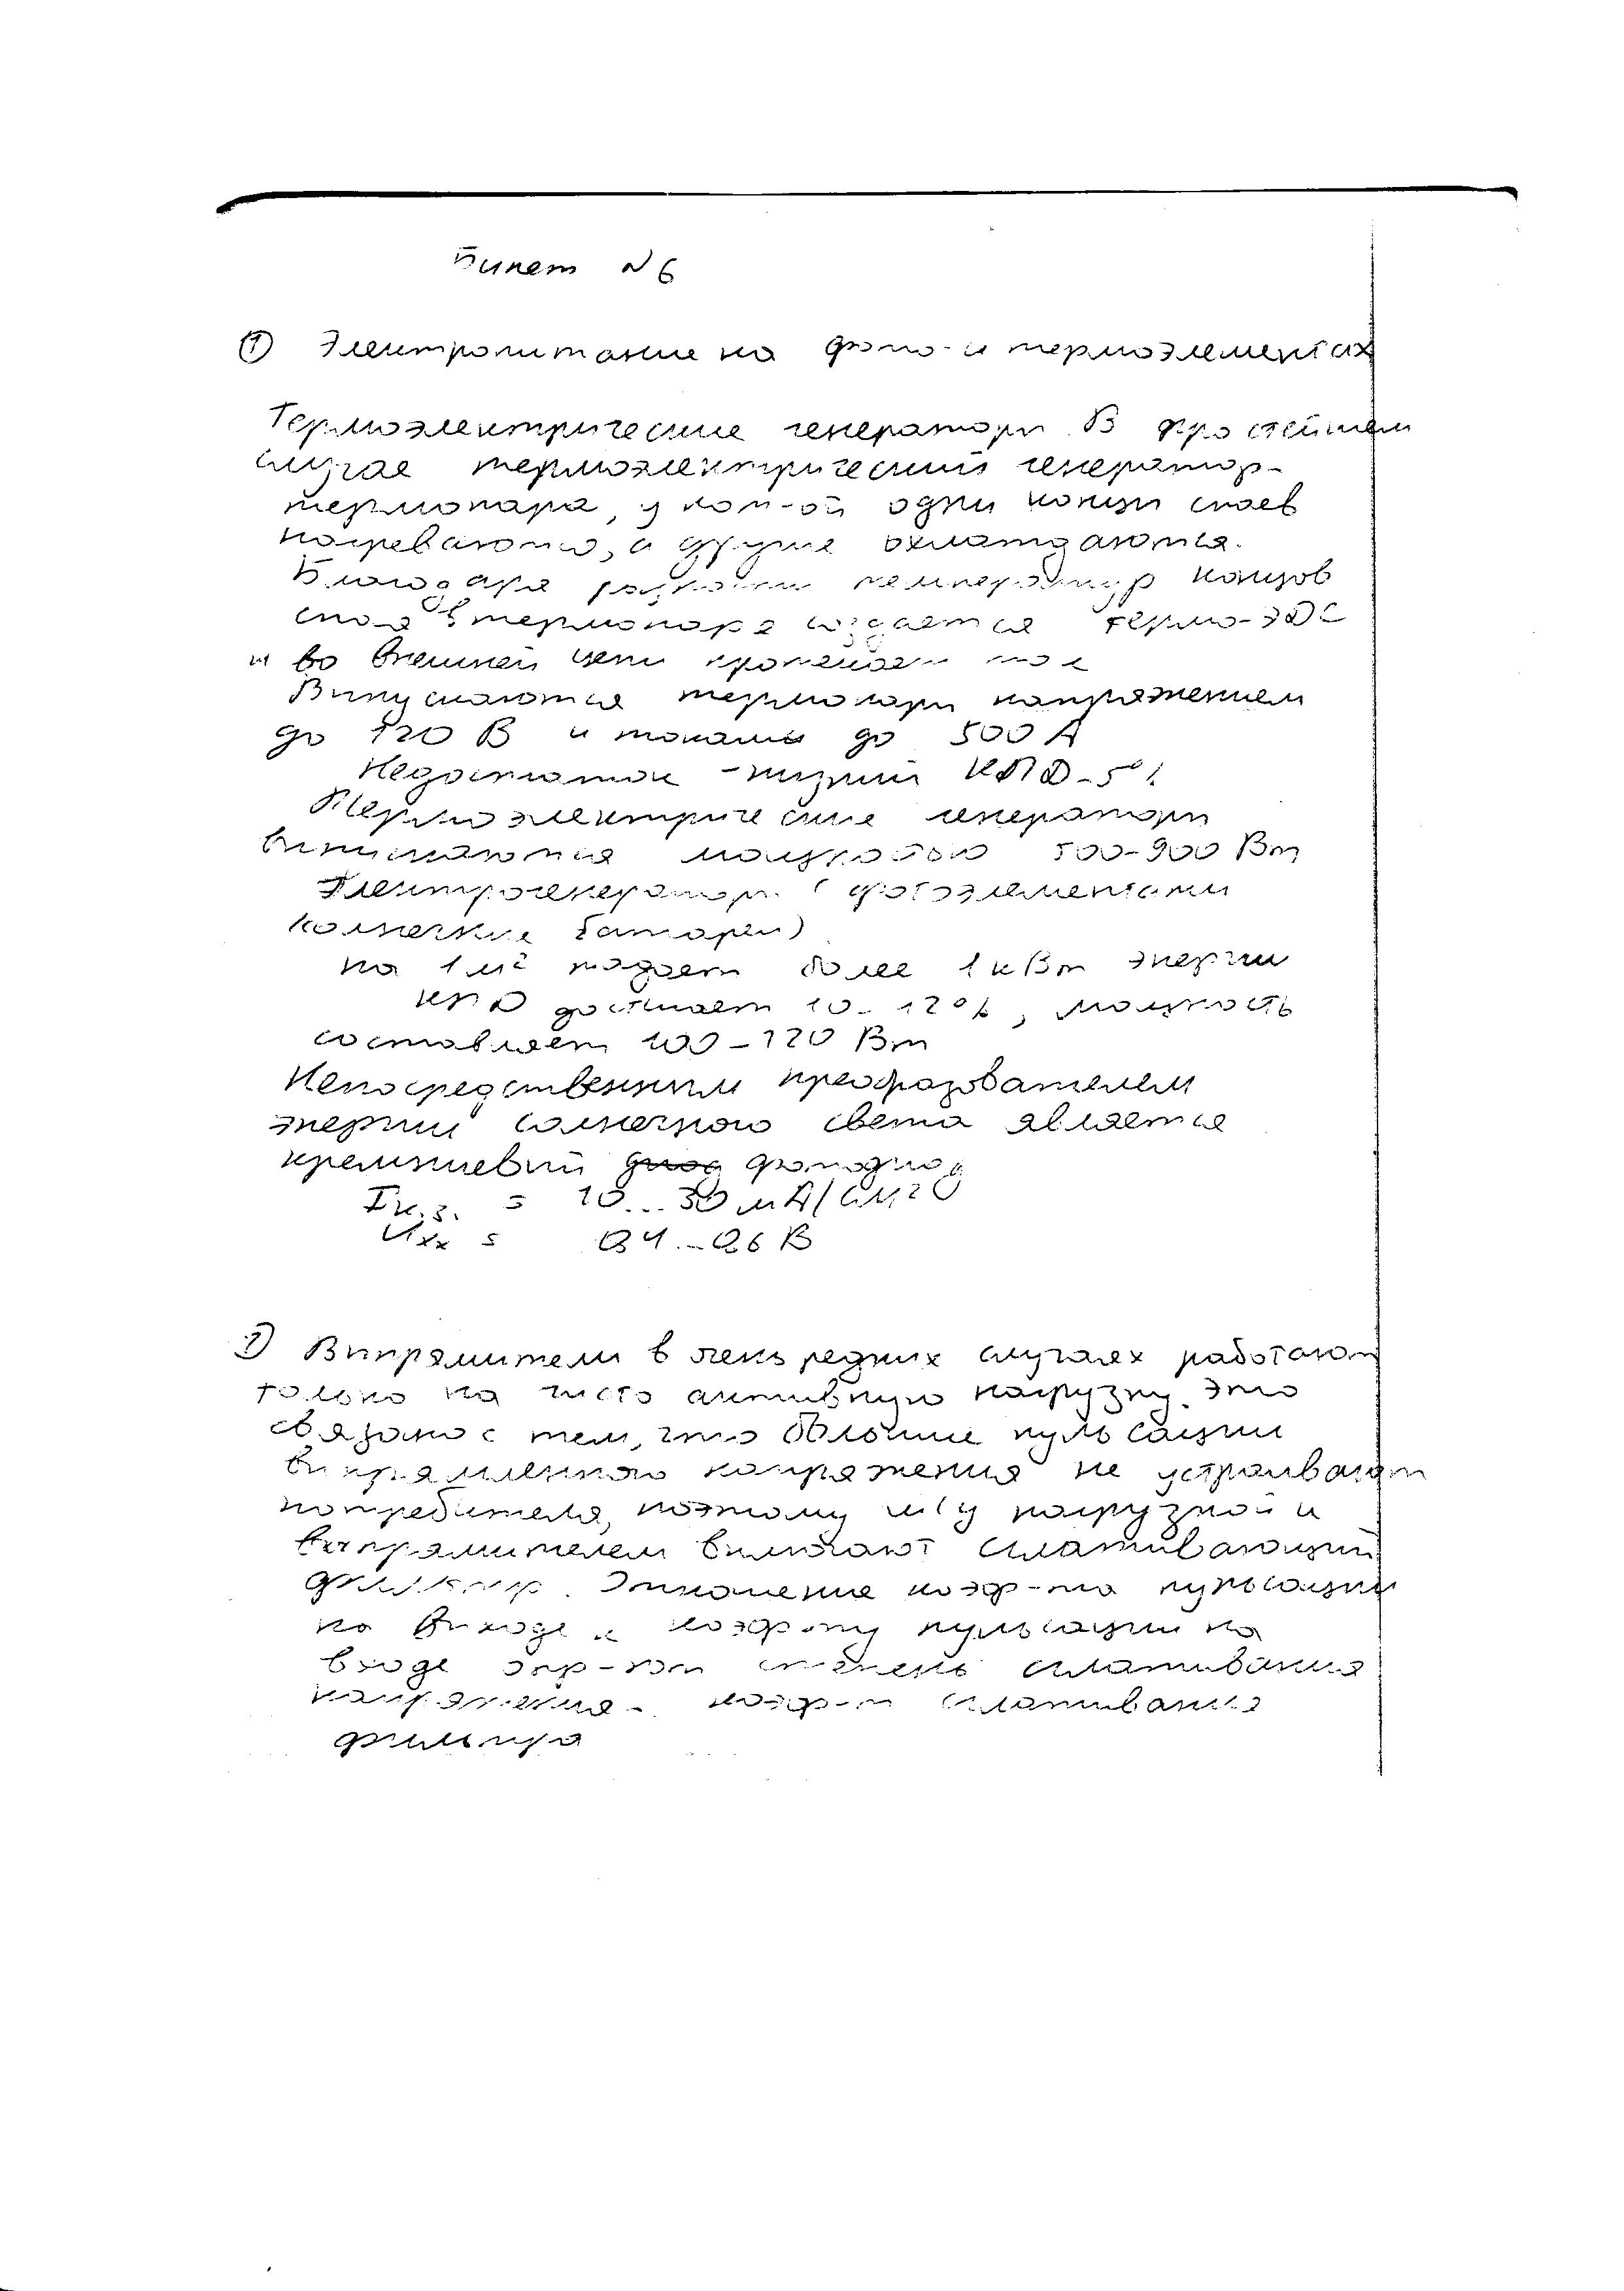 Билет N 6
① Электропитание на фото- и термоэлементах
Термоэлектрические генераторы В простейшем
случае термоэлектрический генератор-
термопара, у кот-ой одни концы слоев
нагреваются, а другие охлаждаются.
Благодаря разности температур концов
слоев термопара создается термо-ЭДС
и во внешней цепи протекает ток
Выпускаются термопары напряжением
до 120 В и токами до 500 А
Недостаток - низкий КПД - 5%
Термоэлектрические генераторы
выпускаются мощностью 500-900 Вт
Электрогенераторы (фотоэлементами
солнечные батареи)
на 1 м² падает более 1 кВт энергии
КПД достигает 10-12%, мощность
составляет 100-120 Вт
Непосредственным преобразователем
энергии солнечного света является
кремниевый диод фотодиод
Iк.з. = 10...50 мА/см²
Uхх = 0,4...0,6 В
2) Выпрямители в очень редких случаях работают
только на чисто активную нагрузку. Это
связано с тем, что большие пульсации
выпрямленного напряжения не устраивают
потребителя, поэтому м/у нагрузкой и
выпрямителем включают сглаживающий
фильтр. Отношение коэф-та пульсации
на выходе к коэф-ту пульсации на
входе опр-ют степень сглаживания
напряжения - коэф-т сглаживания
фильтра